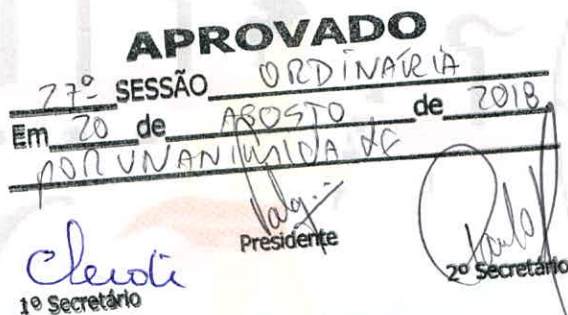 APROVADO
27ª SESSÃO ORDINÁRIA
Em 20 de AGOSTO de 2018
POR UNANIMIDADE
Presidente
2º Secretário
1º Secretário